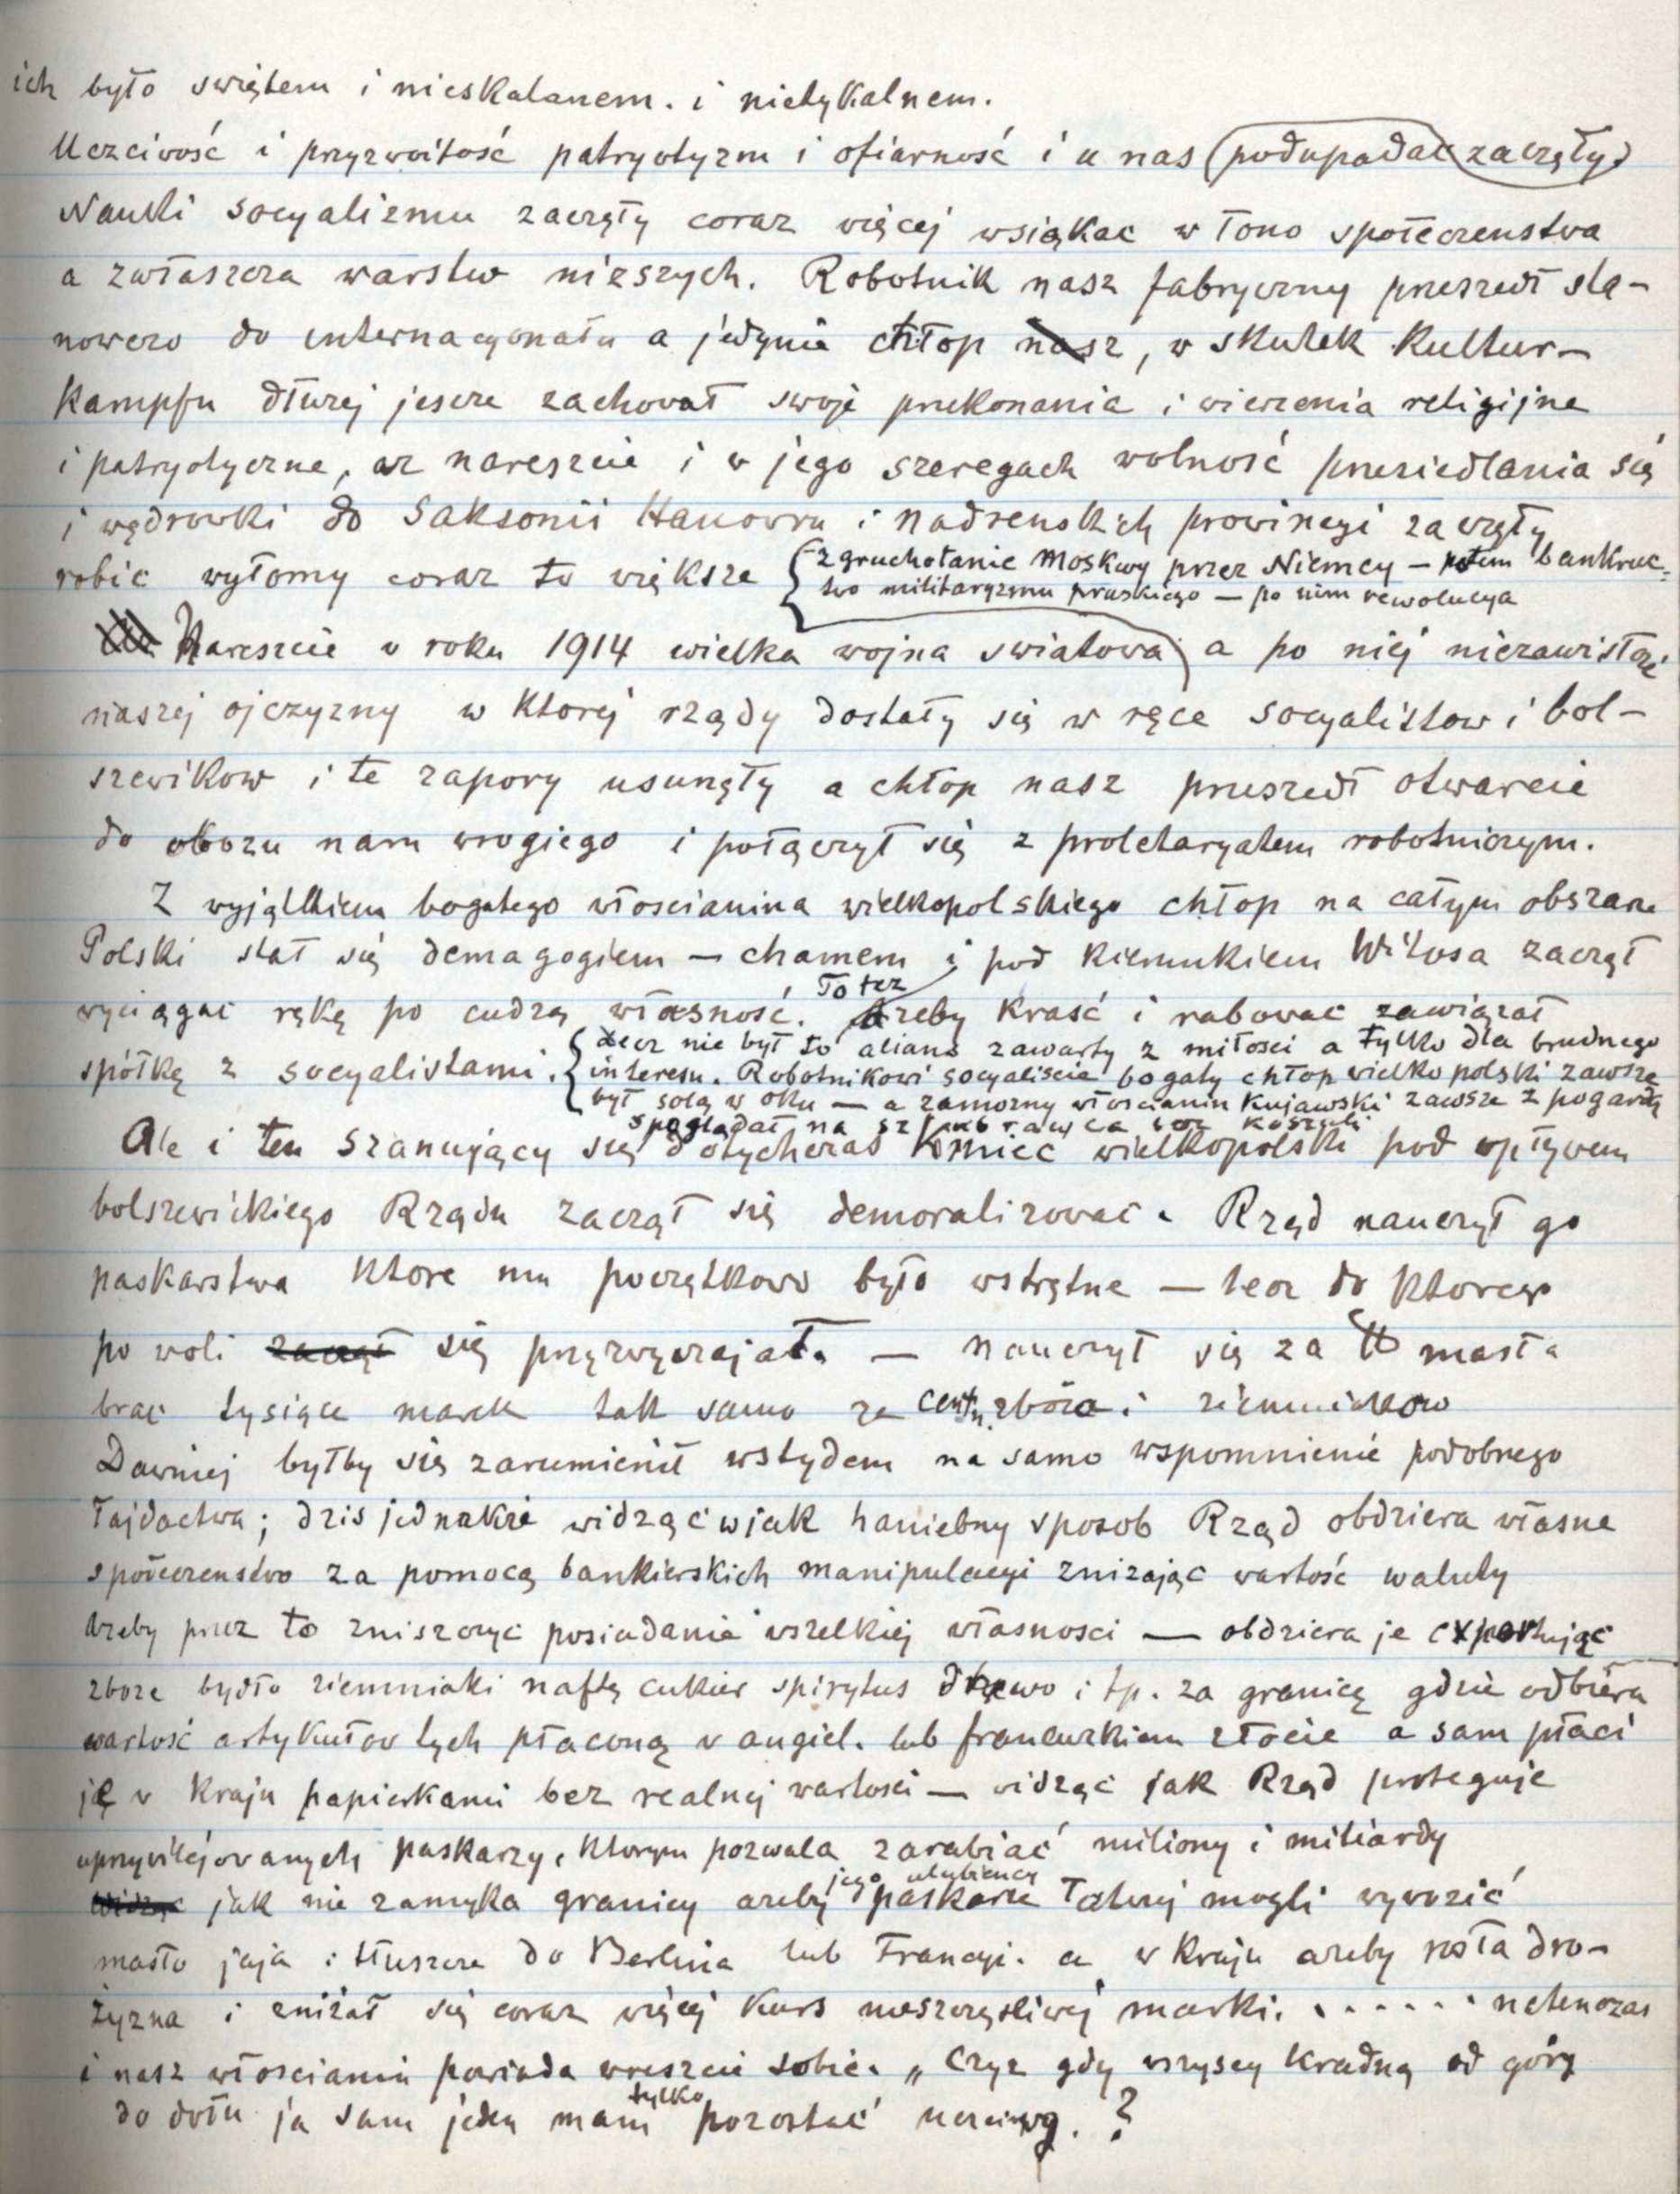 ich było swiętem i nieskalanem. i nietykalnem.
Uczciwość i przyzwoitość patryotyzm i ofiarność i u nas podupadać zaczęły
Nauki socyalizmu zaczęły coraz więcej wsiąkac w łono społeczenstwa
a zwłaszcza warstw nizszych. Robotnik nasz fabryczny przeszedł sta-
nowczo do internacyonału a jedynie chłop nasz, w skutek Kultur-
kampfu dłużej jescze zachował swoje przekonania i wierzenia religijne
i patryotyczne, az nareszcie i w jego szeregach wolność przesiedlania się
i wędrowki do Saksonii Hanowru i nadrenskich prowincyi zaczęły
robic wyłomy coraz to większe
– zgruchotanie Moskwy przez Niemcy – potem bankruc-
two militaryzmu pruskiego – po nim rewolucya
Nareszcie w roku 1914 wielka wojna swiatowa a po niej niezawisłość
naszej ojczyzny w ktorej rządy dostały się w ręce socyalistow i bol-
szewikow i te zapory usunęły a chłop nasz przeszedł otwarcie
do obozu nam wrogiego i połączył się z proletaryatem robotniczym.
Z wyjątkiem bogatego włoscianina wielkopolskiego chłop na całym obszarze
Polski stał się demagogiem – chamem i pod kierunkiem Witosa zaczął
wyciągac rękę po cudzą własność. To tez azeby kraść i rabowac zawiązał
spółkę z socyalistami.
Lecz nie był to alians zawarty z miłosci a tylko dla brudnego
interesu. Robotnikowi socyaliscie bogaty chłop wielkopolski zawsze
był solą w oku – a zamozny włoscianin Kujawski zawsze z pogardą
spoglądał na bez koszuli
Ale i ten szanujący się dotychczas Kmiec wielkopolski pod wpływem
bolszewickiego Rządu zaczął się demoralizować. Rząd nauczył go
paskarstwa ktore mu początkowo było wstrętne – lecz do ktorego
po woli zaczął się przyzwyczajał. – nauczył się za ℔ masła
brac tysiące marek tak samo za centn. zboża i ziemniakow
Dawniej byłby się zarumienił wstydem na samo wspomnienie podobnego
łajdactwa; dzis jednakze widząc w jak haniebny sposob Rząd obdziera własne
społeczenstwo za pomocą bankierskich manipulacyi znizając wartość waluty
azeby przez to zniszczyc posiadanie wszelkiej własnosci – obdziera je exportując
zboze bydło ziemniaki naftę cukier spirytus drzewo i tp. za granicę gdzie odbiera
wartość artykułow tych płaconą w angiel. lub francuzkiem złocie a sam płaci
ję w kraju papierkami bez realnej wartosci – widząc jak Rząd proteguje
uprzywilejowanych paskarzy, ktorym pozwala zarabiać miliony i miliardy
widząc jak nie zamyka granicy azeby jego ulubiency paskarze łatwiej mogli wywozić
masło jaja i tłuszcze do Berlina lub Francyi. a w kraju azeby rosła dro-
żyzna i zniżał się coraz więcej kurs nieszczęsliwej marki. . . . . . . natenczas
i nasz włoscianin powiada wreszcie sobie. „Czyz gdy wszyscy kradną od góry
do dołu ja sam jeden mam tylko pozostać uczciwy. ?